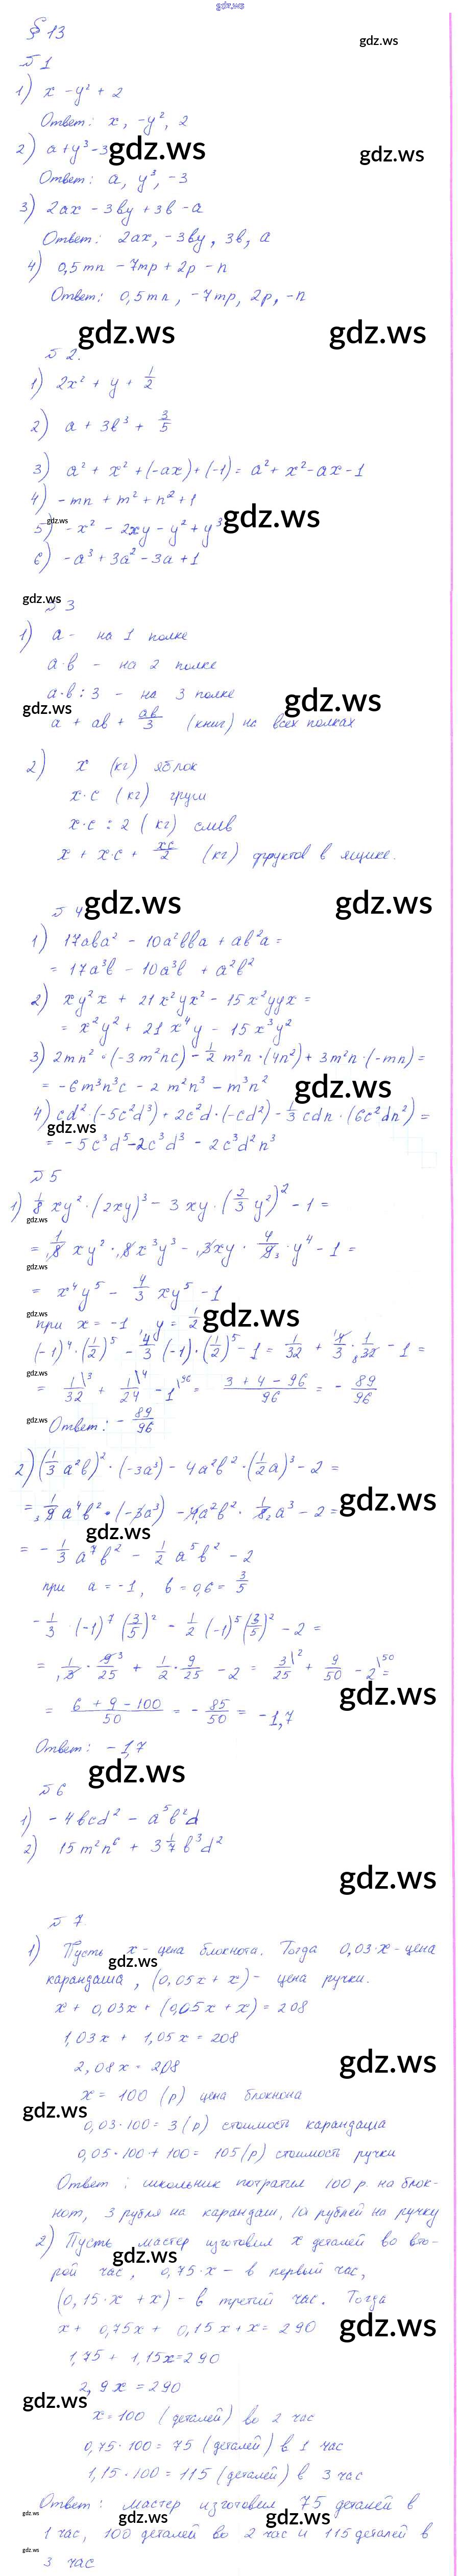 gdz.ws
§ 13
gdz.ws
№ 1
1) x - y² + 2
Ответ: x, -y², 2
2) a + y³ - 3 gdz.ws
gdz.ws
Ответ: a, y³, -3
3) 2ax - 3by + 3b - a
Ответ: 2ax, -3by, 3b, a
4) 0,5mn - 7mp + 2p - n
Ответ: 0,5mn, -7mp, 2p, -n
gdz.ws gdz.ws
№ 2.
1) 2x² + y + 1/2
2) a + 3b³ + 3/5
3) a² + x² + (-ax) + (-1) = a² + x² - ax - 1
4) -mn + m² + n² + 1
gdz.ws
5) -x² - 2xy - y² + y³ gdz.ws
6) -a³ + 3a² - 3a + 1
gdz.ws
№ 3
1) a - на 1 полке
a·b - на 2 полке
a·b : 3 - на 3 полке
gdz.ws gdz.ws
a + ab + ab/3 (книг) на всех полках
2) x (кг) яблок
x·c (кг) груш
x·c : 2 (кг) слив
x + x·c + xc/2 (кг) фруктов в ящике.
№ 4 gdz.ws gdz.ws
1) 17aba² - 10a²bba + ab²a =
= 17a³b - 10a³b + a²b²
2) xy²x + 21x²yx² - 15x²yyx =
= x²y² + 21x⁴y - 15x³y²
3) 2mn² · (-3m²nc) - 1/2 m²n · (4n²) + 3m²n · (-mn) =
= -6m³n³c - 2m²n³ - m³n² gdz.ws
4) cd² · (-5c²d³) + 2c²d · (-cd²) - 1/3 cdn · (6c²dn²) =
gdz.ws
= -5c³d⁵ - 2c³d³ - 2c³d²n³
№ 5
1) 1/8 xy² · (2xy)³ - 3xy · (2/3 y²)² - 1 =
gdz.ws
= 1/8 xy² · 8x³y³ - 3xy · 4/9 · y⁴ - 1 =
gdz.ws
= x⁴y⁵ - 4/3 xy⁵ - 1
gdz.ws
при x = -1, y = 1/2 gdz.ws
(-1)⁴ · (1/2)⁵ - 4/3 (-1) · (1/2)⁵ - 1 = 1/32 + 4/3 · 1/32 - 1 =
gdz.ws
= 1/32 \3 + 1/24 \4 - 1 \96 = 3 + 4 - 96/96 = - 89/96
gdz.ws
Ответ: - 89/96
2) (1/3 a²b)² · (-3a³) - 4a²b² · (1/2 a)³ - 2 =
= 1/9 a⁴b² · (-3a³) - 4a²b² · 1/8 a³ - 2 = gdz.ws
gdz.ws
= - 1/3 a⁷b² - 1/2 a⁵b² - 2
при a = -1, b = 0,6 = 3/5
- 1/3 · (-1)⁷ (3/5)² - 1/2 (-1)⁵ (3/5)² - 2 =
= 1/3 · 9/25 + 1/2 · 9/25 - 2 = 3/25 \2 + 9/50 - 2 \50 =
gdz.ws
= 6 + 9 - 100/50 = - 85/50 = -1,7
Ответ: -1,7
gdz.ws
№ 6
1) -4bcd² - a⁵b²d
2) 15m²n⁶ + 3 1/7 b³d²
gdz.ws
№ 7
1) Пусть x - цена блокнота. Тогда 0,03·x - цена
gdz.ws
карандаша, (0,05x + x) - цена ручки.
x + 0,03x + (0,05x + x) = 208
1,03x + 1,05x = 208
2,08x = 208 gdz.ws
x = 100 (р) цена блокнона
gdz.ws
0,03·100 = 3 (р) стоимость карандаша
0,05·100 + 100 = 105 (р) стоимость ручки
Ответ: школьник потратил 100 р. на блок-
нот, 3 рубля на карандаш, 10 рублей на ручку
2) Пусть мастер изготовил x деталей во вто-
gdz.ws
рой час, 0,75·x - в первый час,
(0,15·x + x) - в третий час. Тогда
x + 0,75x + 0,15x + x = 290 gdz.ws
1,75 + 1,15x = 290
2,9x = 290
gdz.ws
x = 100 (деталей) во 2 час
0,75·100 = 75 (деталей) в 1 час
1,15·100 = 115 (деталей) в 3 час
Ответ: мастер изготовил 75 деталей в
gdz.ws gdz.ws gdz.ws
1 час, 100 деталей во 2 час и 115 деталей в
gdz.ws
3 час